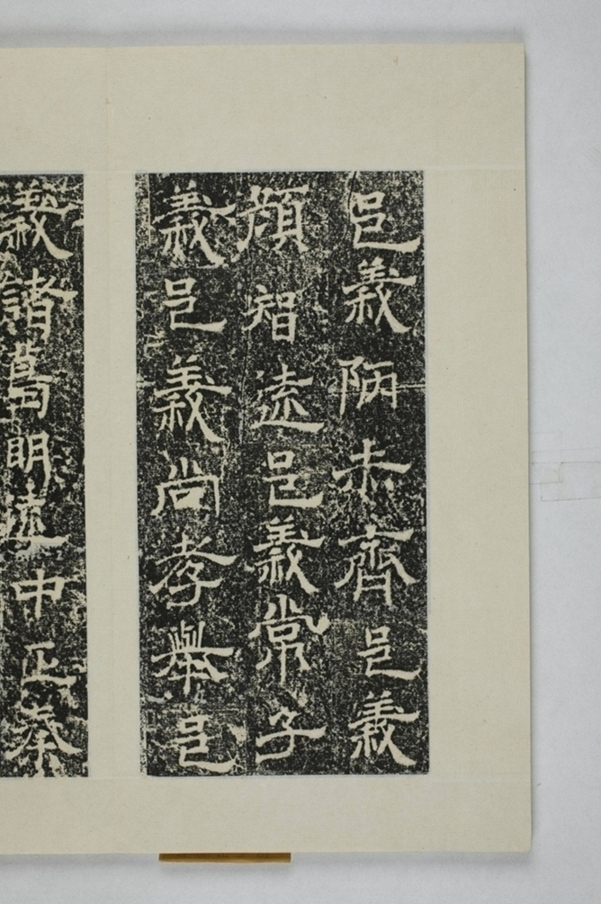 邑義陃赤齊邑義
顏智遠邑義常子
義邑義尚孝舉邑
義諸葛明遠中正秦